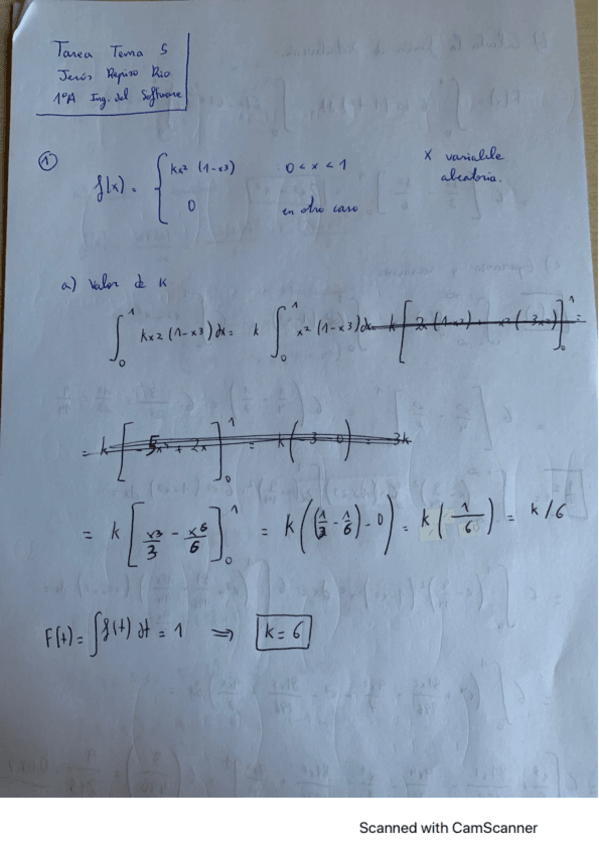 Tarea Tema 5
Jesús Repiso Rio
1ºA Ing. del Software
① f(x) = { kx² (1-x³) 0 < x < 1
0 en otro caso
X variable
aleatoria.
a) Valor de K
∫₀¹ kx² (1-x³) dx = k ∫₀¹ x² (1-x³) dx
= k [ x³/3 - x⁶/6 ]₀¹ = k ( (1/3 - 1/6) - 0 ) = k ( 1/6 ) = k/6
F(t) = ∫ f(t) dt = 1 ⇒ k = 6
Scanned with CamScanner